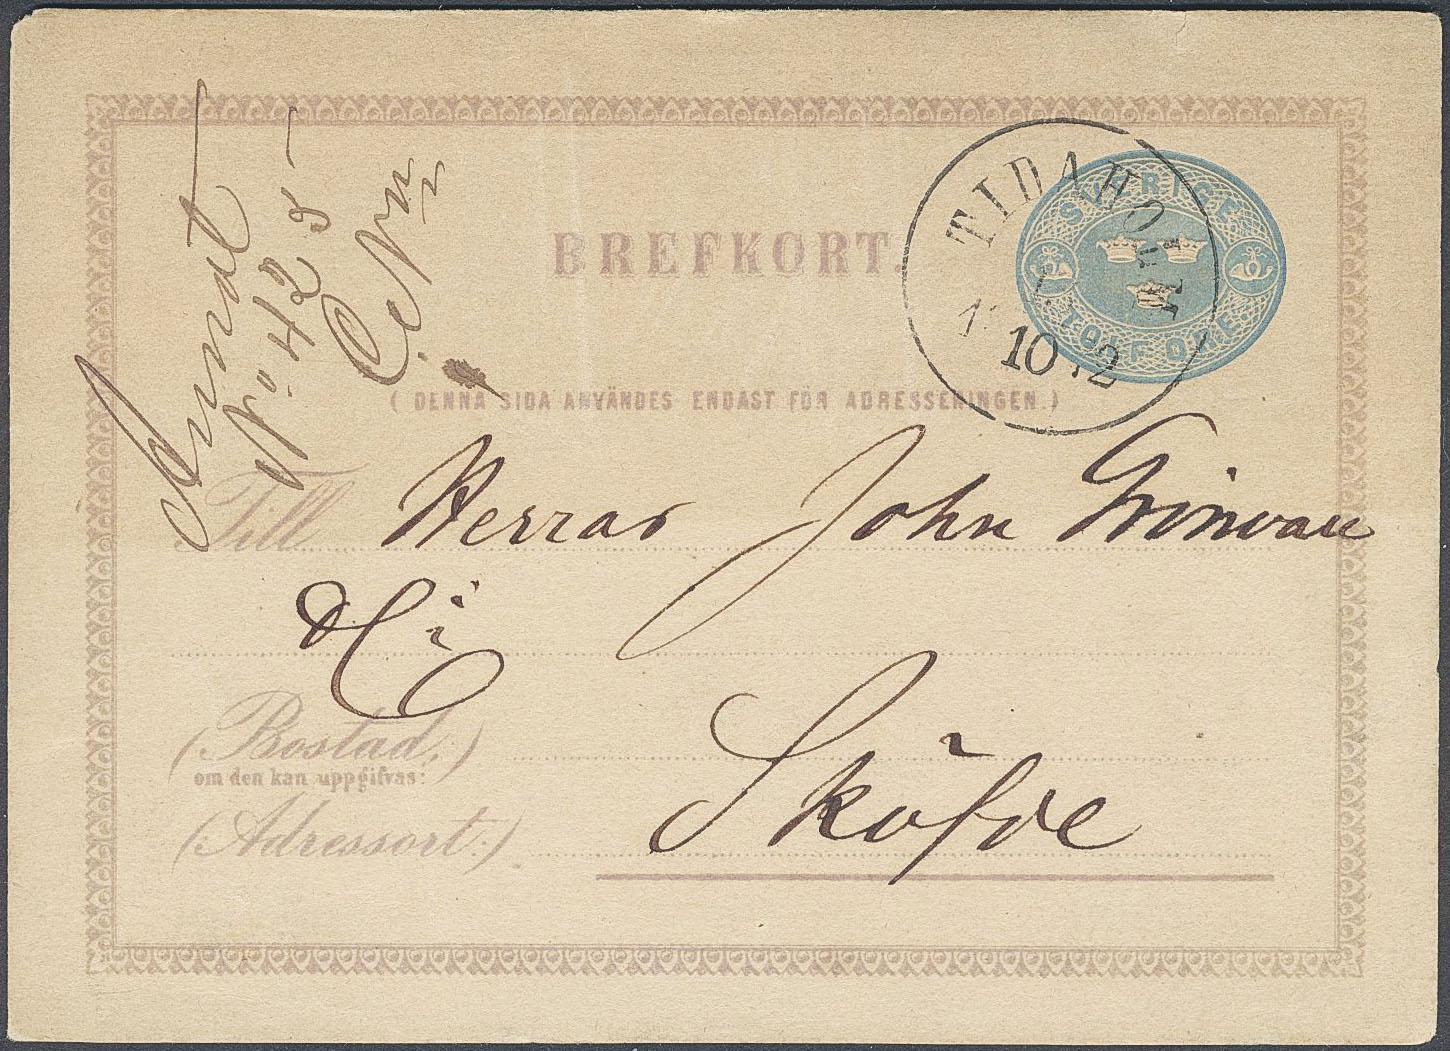 Annat
No. 425
BREFKORT.
SVERIGE
TIO F ÖRE
TIDAHOLM
10
(DENNA SIDA ANVÄNDES ENDAST FÖR ADRESSERINGEN.)
Till Herrar John
& Ci
(Bostad,)
om den kan uppgifvas:
(Adressort:)
Sköfde